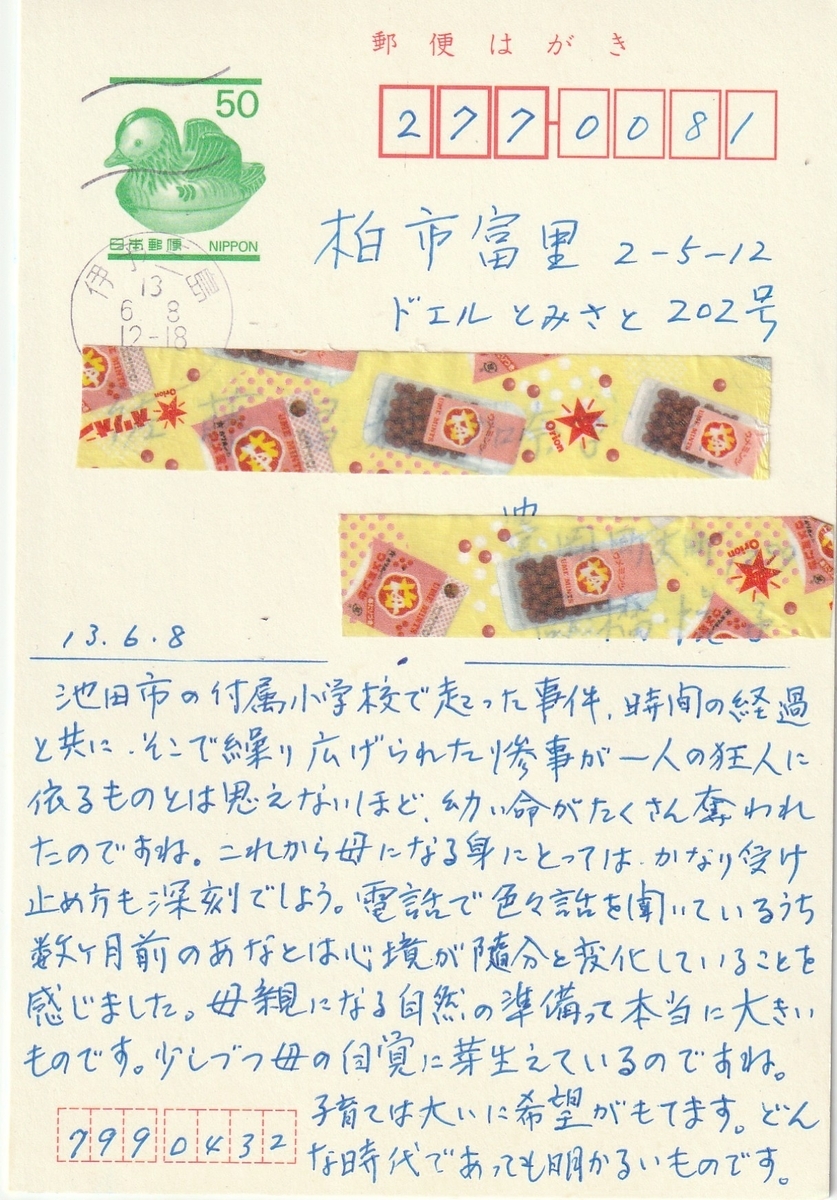 郵便はがき
50
日本郵便 NIPPON
277-0081
柏市富里 2-5-12
ドエルとみさと 202号
13
6 8
12-18
Orion
UME MINTS
ウメミンツ
Orion
UME MINTS
ウメミンツ
UME MINTS
Orion
13.6.8
池田市の付属小学校で起った事件、時間の経過
と共に、そこで繰り広げられた惨事が一人の狂人に
依るものとは思えないほど、幼い命がたくさん奪われ
たのですね。これから母になる身にとっては、かなり受け
止め方も深刻でしょう。電話で色々話を聞いているうち
数ヶ月前のあなたとは心境が随分と変化していることを
感じました。母親になる自然の準備って本当に大きい
ものです。少しづつ母の自覚に芽生えているのですね。
子育ては大いに希望がもてます。どん
な時代であっても明かるいものです。
7990432